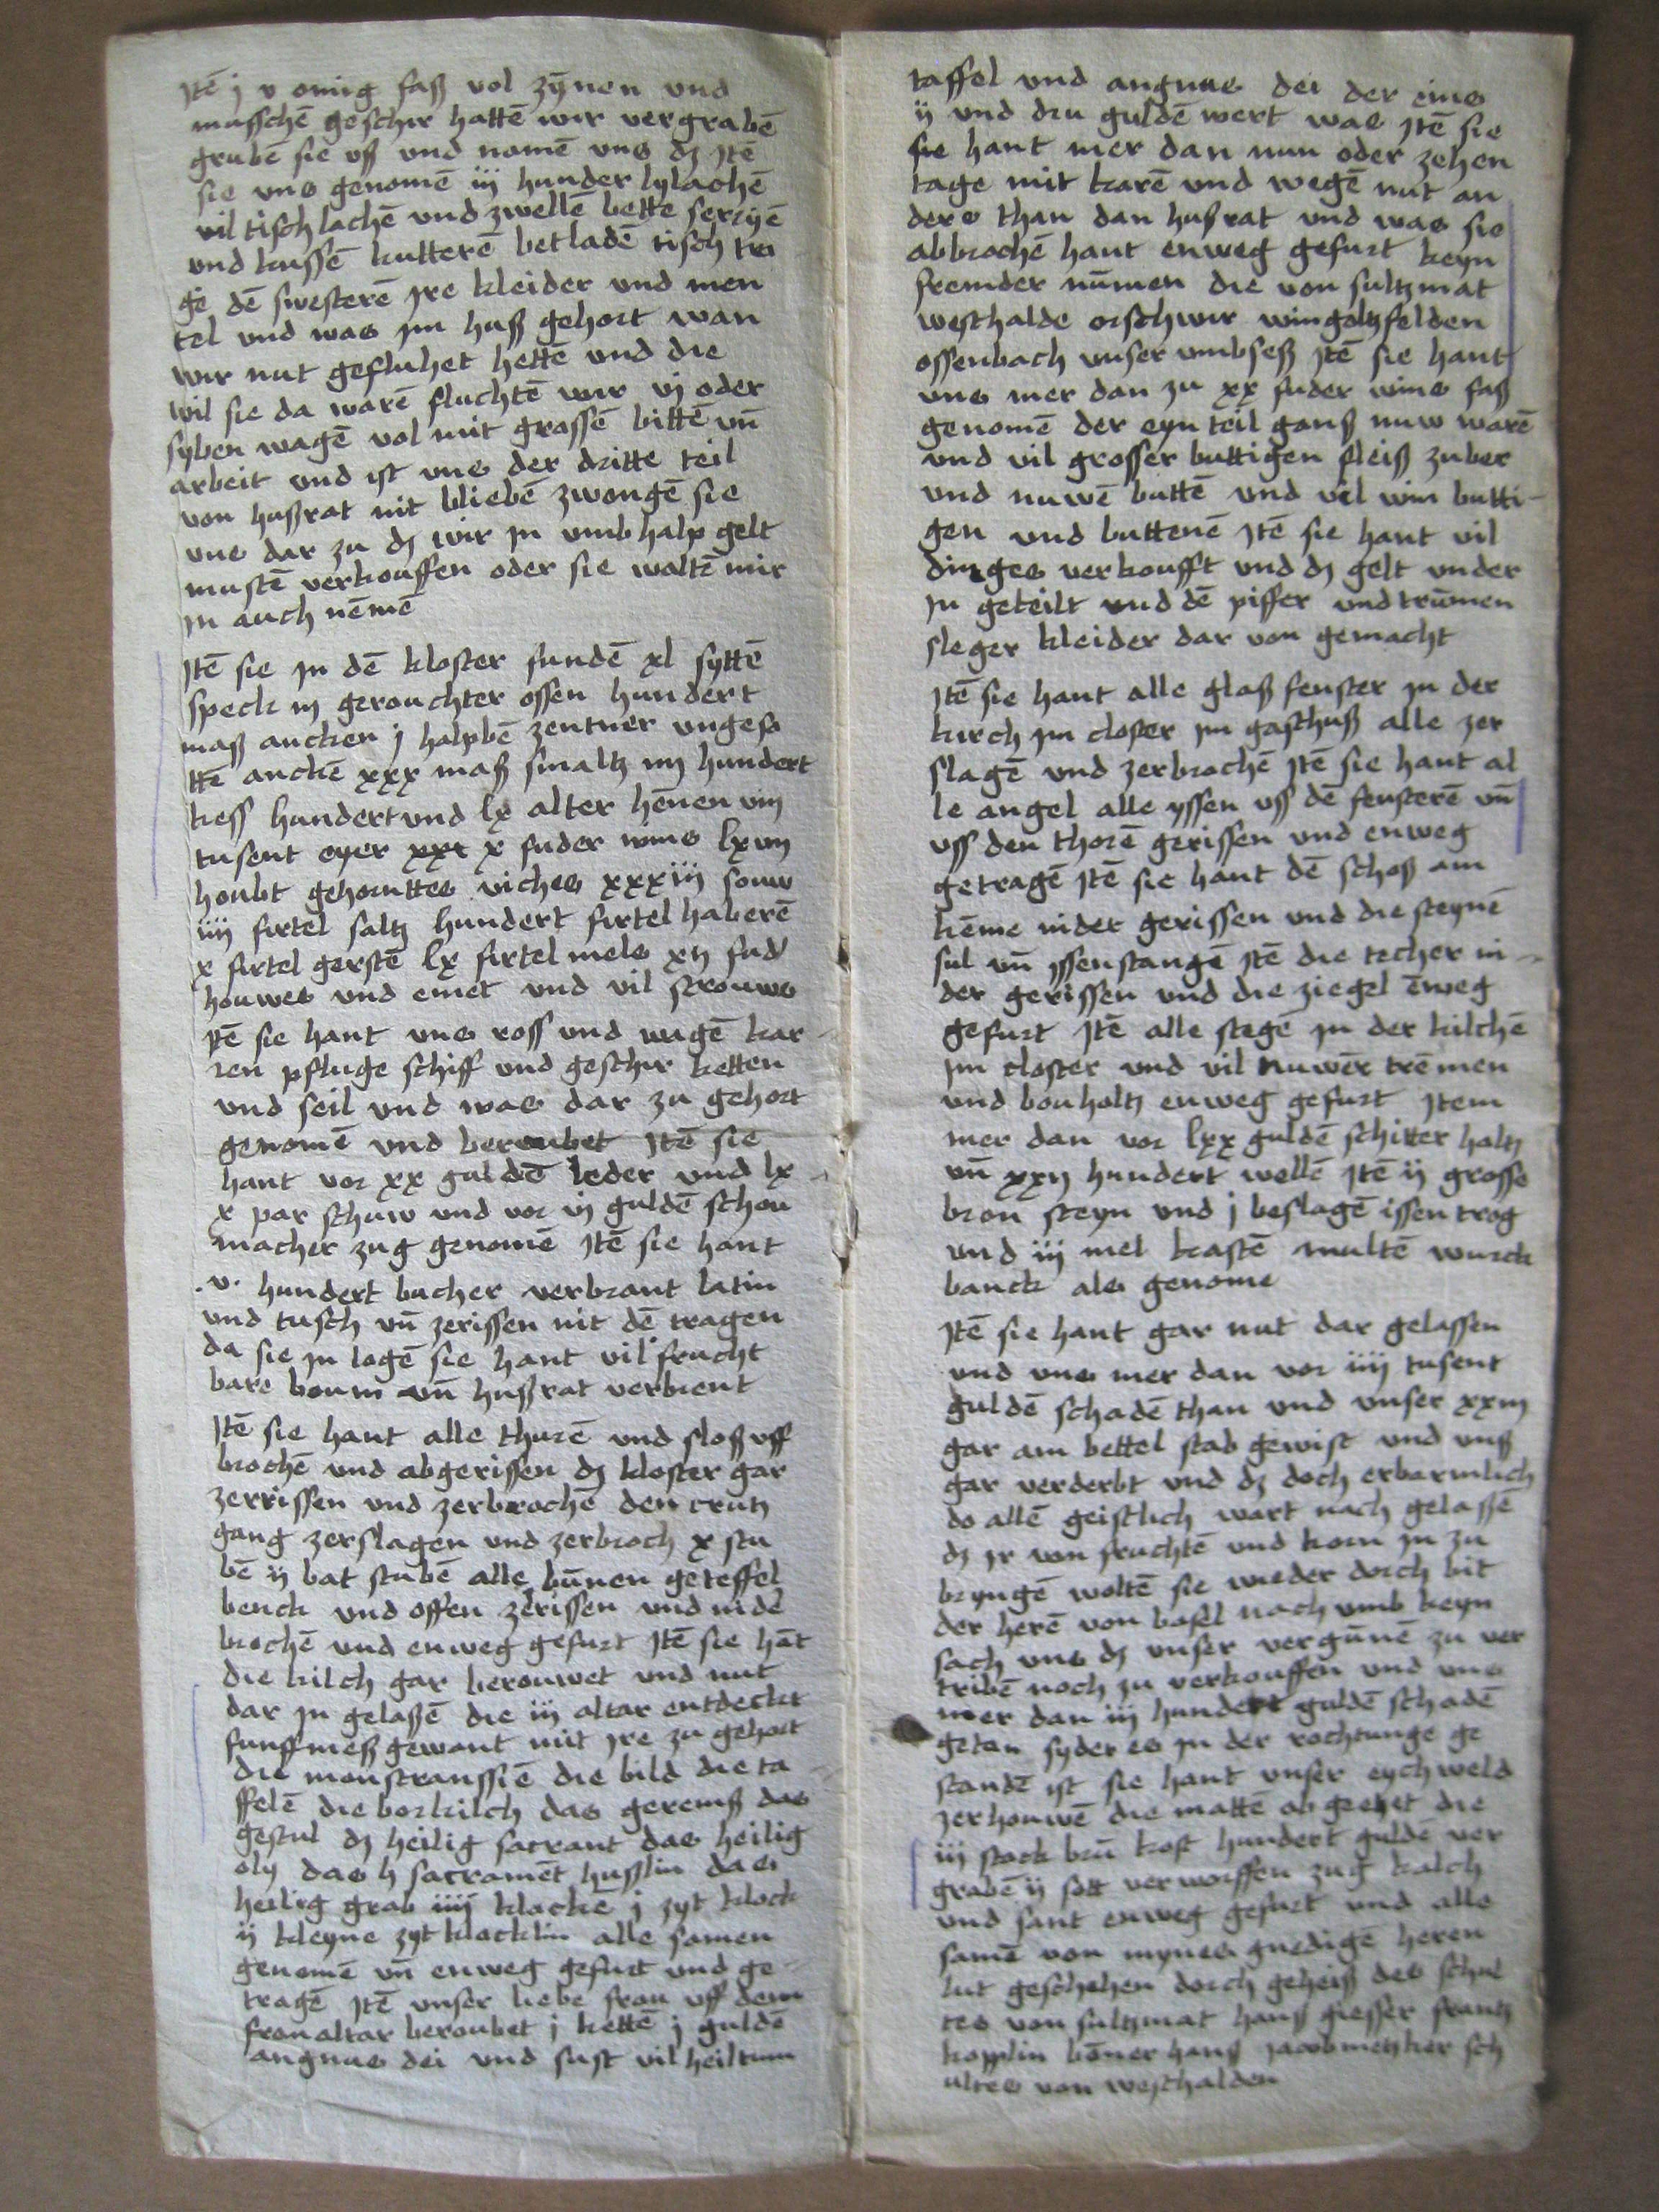 Itē j v omig faß vol zÿnen und
musschē geschir hattē wir vergrabē
grubē sie uß und nomē uns dz Itē
sie uns genomē iij hunder lylachē
vil tischlachē und zwellē bette serzijē
und kussē kutterē betladē tisch tro
ge dē swesterē Ire kleider und men
tel und was Im huß gehort wan
wir nut gefluhet hettē und die
wil sie da warē fluchtē wir vj oder
syben wagē vol mit grossē bittē uñ
arbeit und ist uns der dritte teil
von hußrat nit bliebē zwongē sie
uns dar zu dz wir In umb halp gelt
mustē verkouffen oder sie woltē mir
In auch nēmē
Itē sie In dē kloster fundē xl syttē
speck iij gerouchter ossen hundert
maß ancken j halpbē zentner ungeso
ttē anckē xxx maß smaltz iiij hundert
kess hundert und lx alter hēnen viij
tusent eyer x fuder wins lxviij
houbt gehornttes viches xxxiij souw
iiij firtel saltz hundert firtel haberē
x firtel gerstē lx firtel mels xij fud
houwes und emet und vil strouws
Itē sie hant uns ross und wagē kar
ren pfluge schiff und geschir ketten
und seil und was dar zu gehort
genomē und beroubet Itē sie
hant vor xx guldē leder und lx
x par schuw und vor vj guldē schou
macher zug genomē Itē sie hant
.v. hundert bucher verbrant latin
und tusch uñ zerissen mit dē tragen
da sie In logē sie hant vil frucht
bare boum uñ hußrat verbrent
Itē sie hant alle thurē und sloß uff
brochē und abgerissen dz kloster gar
zerrissen und zerbrochē den crutz
gang zerslagen und zerbroch x stu
bē ij bat stubē alle būnen geteffel
benck und offen zerissen und nidē
brochē und enweg gefurt Itē sie hāt
die kilch gar berouwet und nut
dar In gelaßē die iij altar entdeckt
funff meß gewant mit Ire zu gehort
die monstranssiē die bild die ta
ffelē die borkilch das geremß das
gestul dz heilig sacrant das heilig
oly das h sacramēt hußlin das
heilig grab iiij klockē j zyt klock
ij kleyne zyt klocklin alle samen
genomē uñ enweg gefurt und ge
tragē Itē unser liebe frou uff dem
fronaltar beroubet j kettē j guldē
angnus dei und sust vil heiltum
taffel und angnus dei der eins
ij und dru guldē wert was Itē sie
sie hant mer dan nun oder zehen
tage mit karē und wegē nut an
ders than dan hußrat und was sie
abbrochē hant enweg gefurt keyn
fremder nūmen die von sultzmat
westhalde orschwir wingoltzfelden
ossenbach unser umbseß Itē sie hant
uns mer dan zu xx fuder wins faß
genomē der eyn teil gantz nuw warē
und vil grosser buttigen fleiß zuber
und nuwē buttē und vil win butti-
gen und buttenē Itē sie hant vil
dinges verkoufft und dz gelt under
In geteilt und dē piffer und trūmen
sleger kleider dar von gemacht
Itē sie hant alle glaß fenster In der
kirch Im closter Im gasthuß alle zer
slagē und zerbrochē Itē sie hant al
le angel alle yssen uss dē fensterē uñ
uss den thorē gerissen und enweg
getragē Itē sie hant dē schoß am
kēme nider gerissen und die steynē
sul uñ yssenstangē Itē die techer ni-
der gerissen und die ziegel ēweg
gefurt Itē alle stegē In der kilchē
Im closter und vil nuwēr trēmen
und bouholtz enweg gefurt Item
mer dan vor lxx guldē schitter holtz
uñ xxij hundert wellē Itē ij grosse
bron steyn und j beslagē issen trog
und iij mel kastē multē wurck
banck als genome
Itē sie hant gar nut dar gelassen
und uns mer dan vor iiij tusent
guldē schadē than und unser xxiij
gar am bettel stab gewist und unß
gar verderbt und dz doch erbarmlich
do allē geistlich wart nach gelaßē
dz Ir win fruchtē und korn In zu
bryngē woltē sie wieder dorch bit
der herē von basel nach umb keyn
sach uns dz unser vergūnē zu ver
tribē noch zu verkouffen und uns
mer dan iij hundert guldē schadē
getan syder es In der rochtunge ge
standē ist sie hant unser eychweld
zerhouwē die mattē ab geehet die
iij stock brū kost hundert guldē ver
grabē ij sott verworffen zug kalch
und sant enweg gefurt und alle
samē von mynes gnedigē heren
lut geschehen dorch geheiß des schul
tes von sultzmat hans giesser frantz
kopplin bōner hans Jacob metzker sch
ultes von westhalden